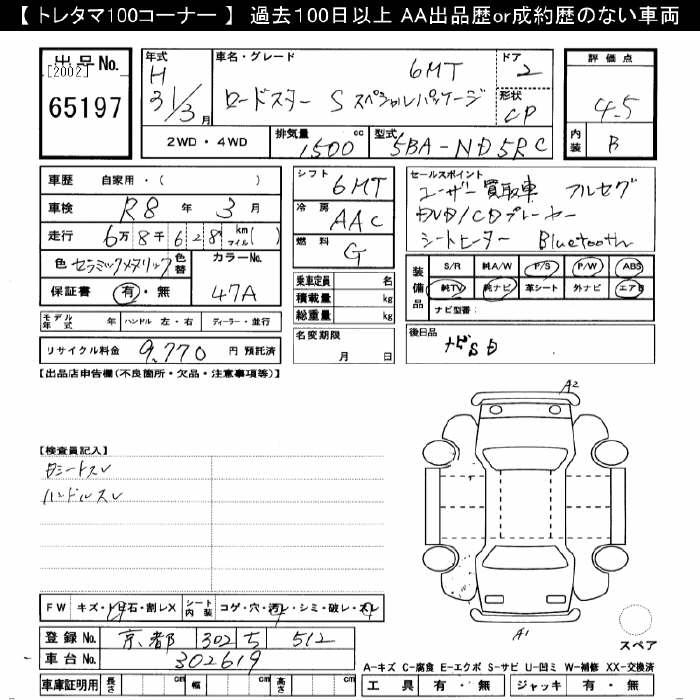 【 トレタマ100コーナー 】 過去100日以上 AA出品歴or成約歴のない車両
出品 No.
[2002]
65197
年式 H 31/3 月
車名・グレード 6MT
ロードスター S スペシャルパッケージ
ドア 2
形状 CP
評価点
4.5
内装 B
2WD・4WD 排気量 1500 cc 型式 5BA-ND5RC
車歴 自家用・( )
車検 R8 年 3 月
走行 6万 8千 6 2 8 km マイル( )
色 セラミックメタリック 色替 カラーNo. 47A
保証書 有・無
シフト 6MT
冷房 AAC
燃料 G
乗車定員 名
積載量 kg
総重量 kg
セールスポイント
ユーザー買取車 フルセグ
DVD/CDプレーヤー
シートヒーター Bluetooth
装備品 S/R 純A/W P/S P/W ABS
純TV 純ナビ 革シート 外ナビ エアB
ナビ型番:
モデル年式 年 ハンドル 左・右 ディーラー・並行
リサイクル料金 9,770 円 預託済
名変期限 月 日
後日品 ナビSD
【出品店申告欄(不良箇所・欠品・注意事項等)】
【検査員記入】
シートスレ
ハンドルスレ
A2
A1
スペア
FW キズ・トビ石・割レX シート内装 コゲ・穴・汚レ・シミ・破レ・スレ
登録 No. 京都 302 ち 512
車台 No. 302619
A-キズ C-腐食 E-エクボ S-サビ U-凹ミ W-補修 XX-交換済
車庫証明用 長さ cm 幅 cm 高さ cm
工具 有・無 ジャッキ 有・無